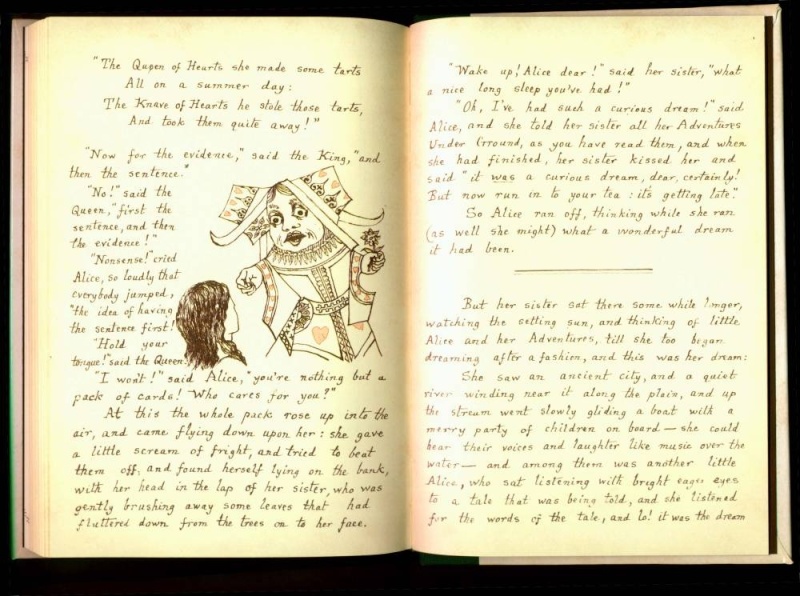 "The Queen of Hearts she made some tarts
All on a summer day:
The Knave of Hearts he stole those tarts,
And took them quite away!"
"Now for the evidence," said the King, "and
then the sentence."
"No!" said the
Queen, "first the
sentence, and then
the evidence!"
"Nonsense!" cried
Alice, so loudly that
everybody jumped,
"the idea of having
the sentence first!"
"Hold your
tongue!" said the Queen.
"I won't!" said Alice, "you're nothing but a
pack of cards! Who cares for you?"
At this the whole pack rose up into the
air, and came flying down upon her: she gave
a little scream of fright, and tried to beat
them off, and found herself lying on the bank,
with her head in the lap of her sister, who was
gently brushing away some leaves that had
fluttered down from the trees on to her face.
"Wake up! Alice dear!" said her sister, "what
a nice long sleep you've had!"
"Oh, I've had such a curious dream!" said
Alice, and she told her sister all her Adventures
Under Ground, as you have read them, and when
she had finished, her sister kissed her and
said "it was a curious dream, dear, certainly!
But now run in to your tea: it's getting late."
So Alice ran off, thinking while she ran
(as well she might) what a wonderful dream
it had been.
But her sister sat there some while longer,
watching the setting sun, and thinking of little
Alice and her Adventures, till she too began
dreaming after a fashion, and this was her dream:
She saw an ancient city, and a quiet
river winding near it along the plain, and up
the stream went slowly gliding a boat with a
merry party of children on board — she could
hear their voices and laughter like music over the
water — and among them was another little
Alice, who sat listening with bright eager eyes
to a tale that was being told, and she listened
for the words of the tale, and lo! it was the dream